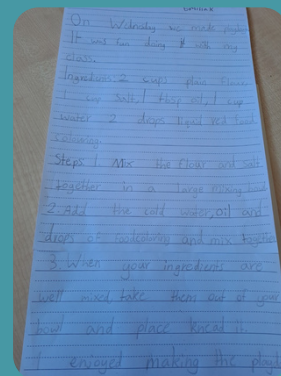 On Wednesday we made playdoh
It was fun doing it with my
class.
Ingredients 2 cups plain flour
1 cup salt, 1 tbsp oil, 1 cup
water 2 drops liquid red food
colouring.
Steps 1. Mix the flour and salt
together in a large mixing bowl
2. Add the cold water, oil and
drops of foodcolouring and mix together
3. When your ingredients are
well mixed, take them out of your
bowl and place knead it.
I enjoyed making the